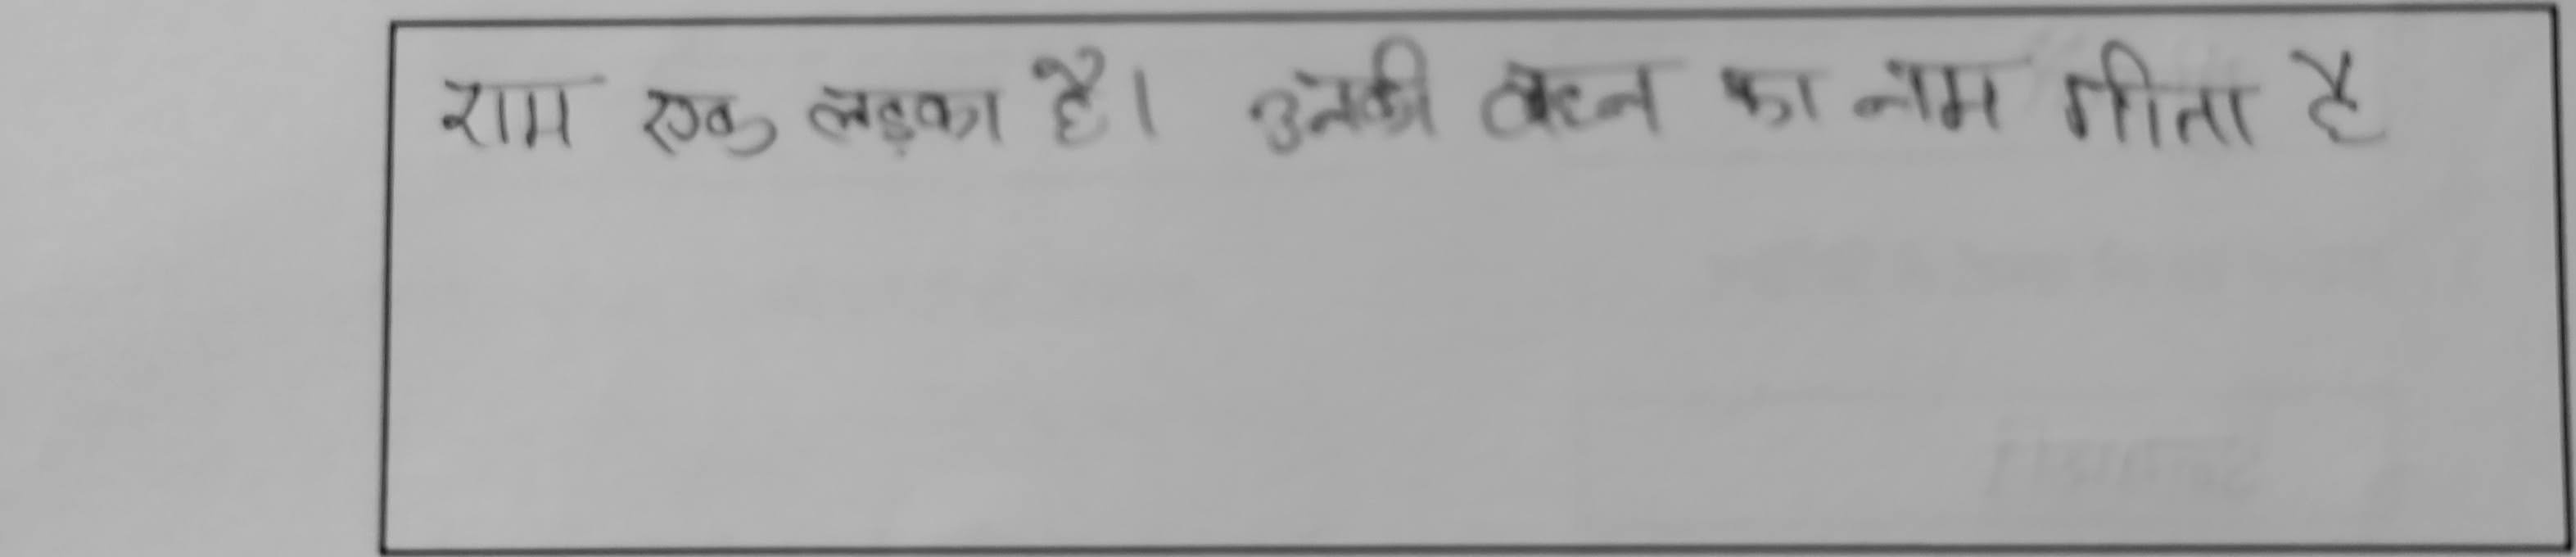 राम एक लड़का है। उनकी बहन का नाम गीता है